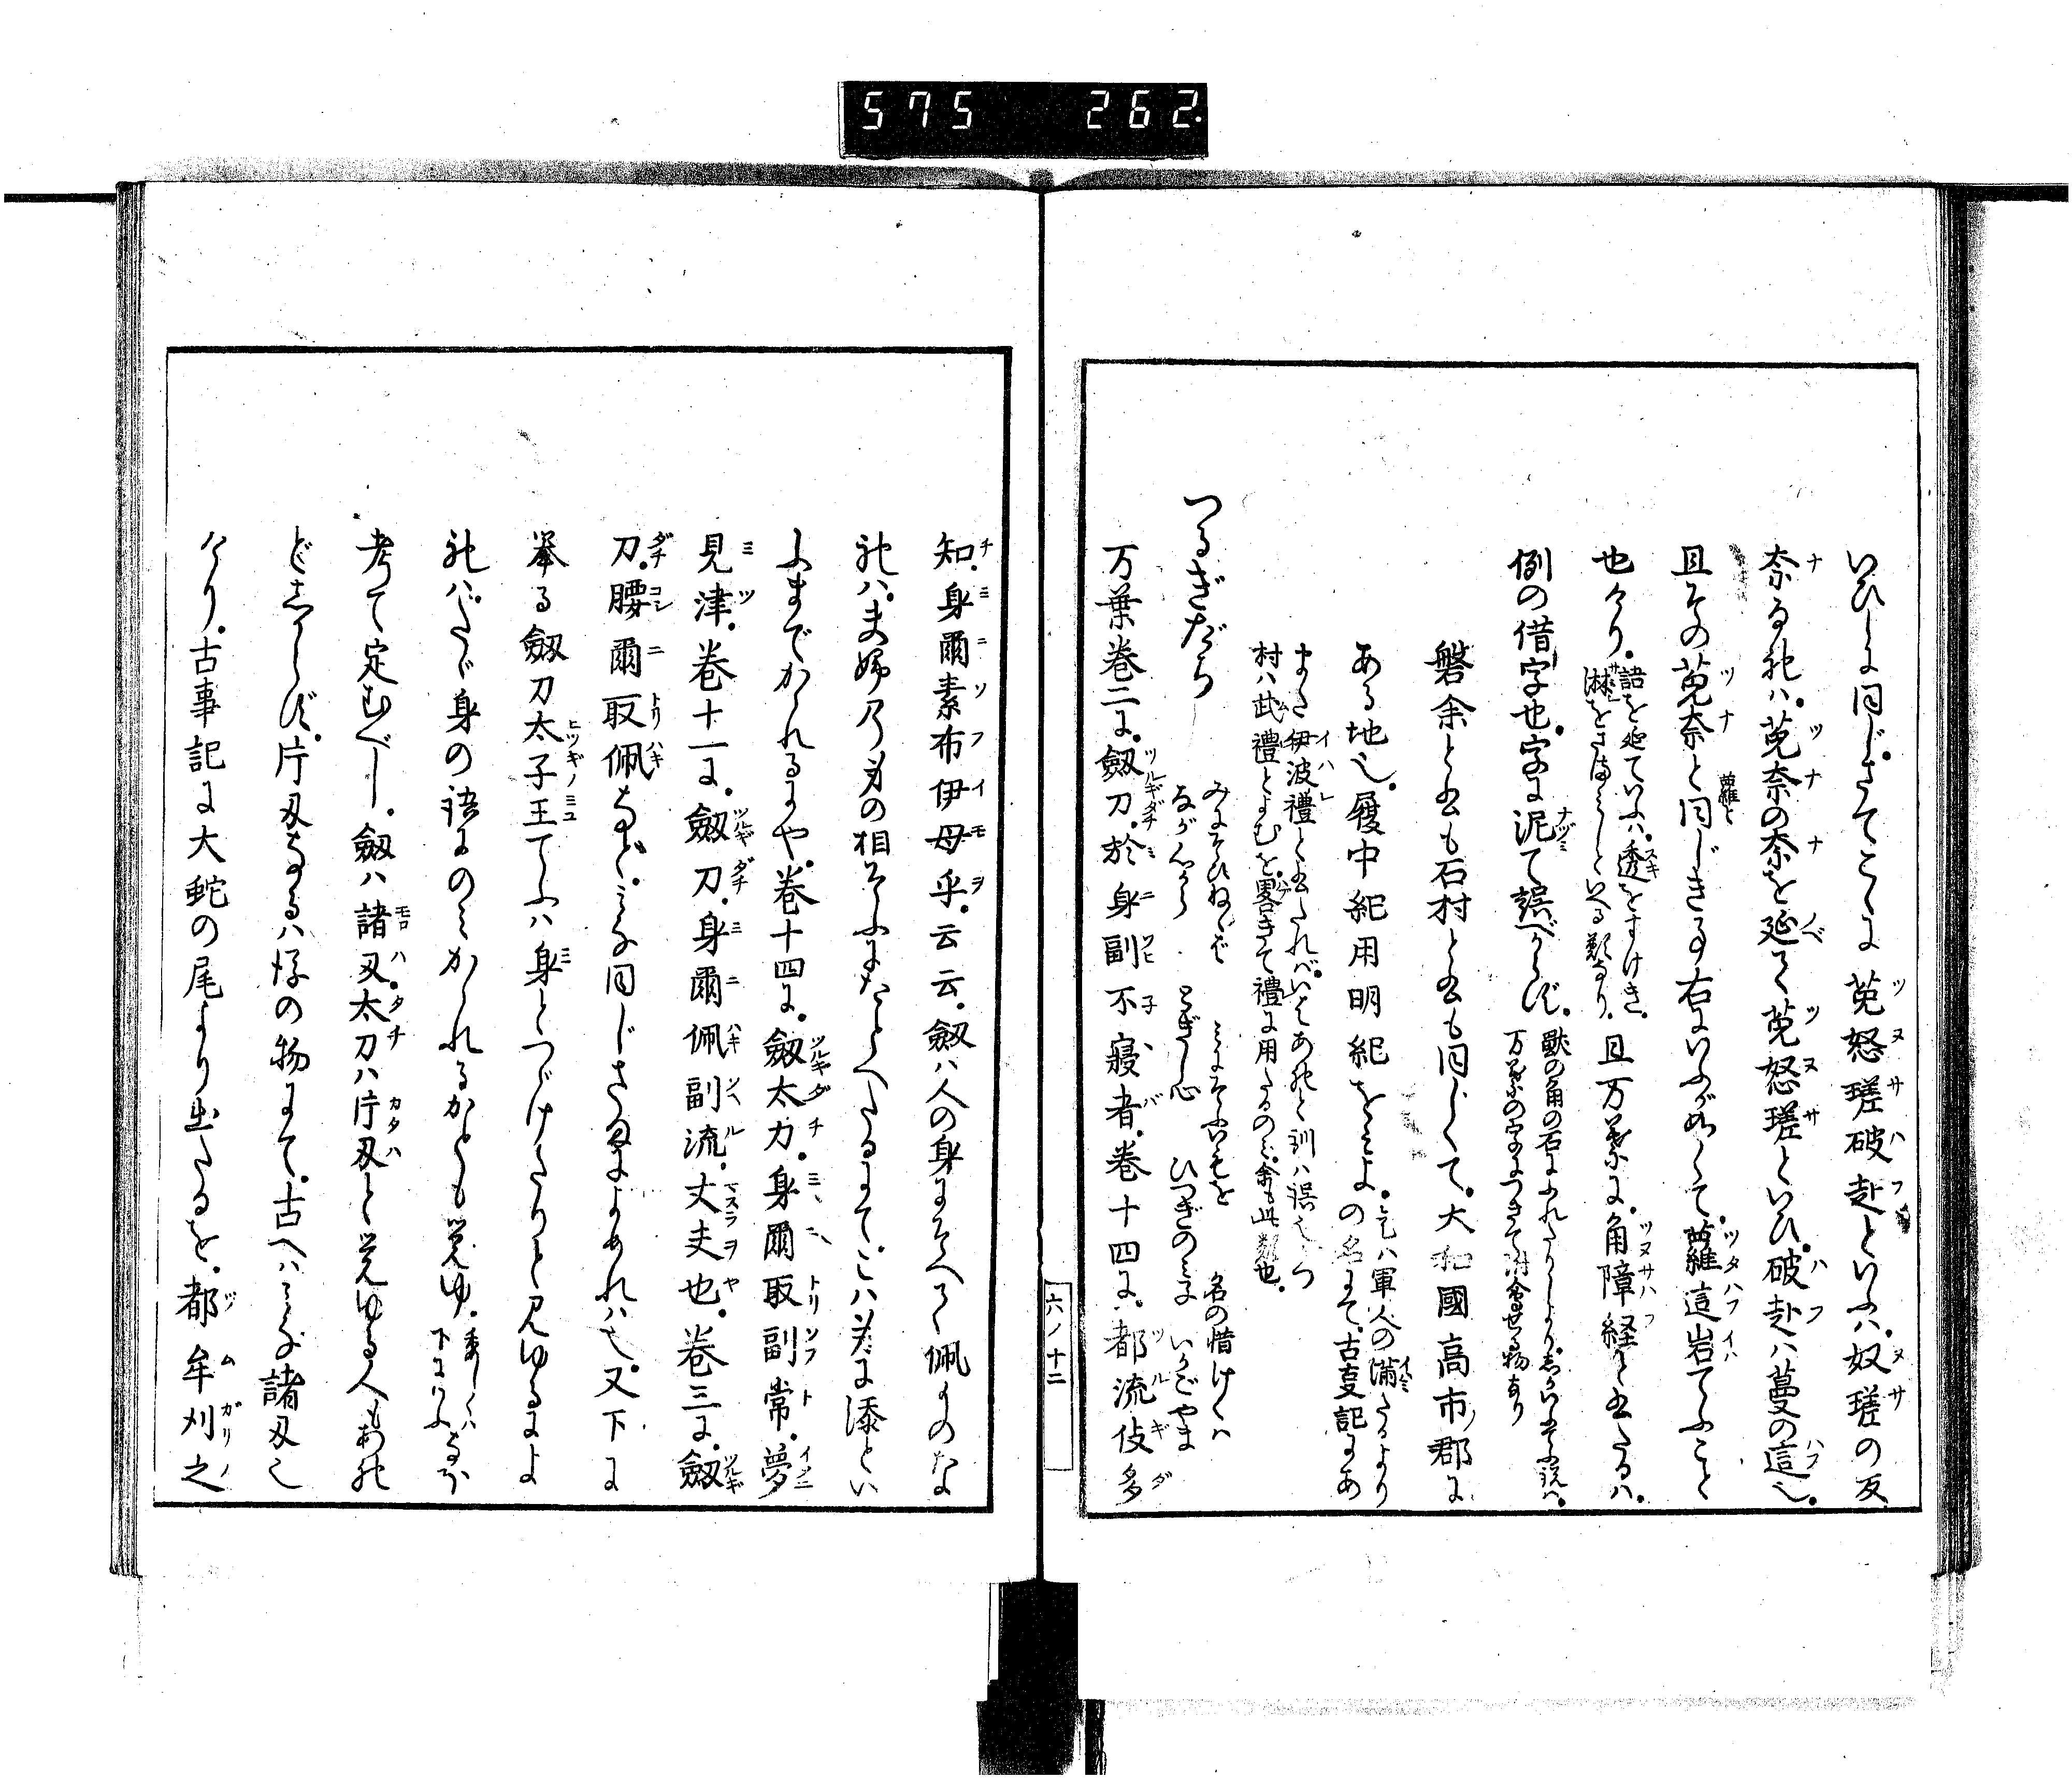 575 262.
いひしに同じ。さてこゝに菟怒瑳破赴といふは、奴瑳の反
奈なれば、菟奈の奈を延て菟怒瑳といひ、破赴ハ蔓の這也。
且その菟奈と蘿と同じきる右にいふが如くて、蘿這岩てふこと
也けり。語を延ていふハ、透をすけき、
淋をさまゝしといへる類なり。且万葉に、角障経と書たるハ、
例の借字也。字に泥て誤べからず。
万葉の字につきて附會せる物あり
磐余と書も石村と書も同じくて、大和國高市ノ郡に
ある地也。履中紀用明紀をみよ。こハ軍人の満たるより
の名にて、古事記にあ
また伊波禮と書たれバ、いはあれと訓ハ誤也。かつ
村ハ武禮とよむを、畧きて禮に用たるのミ。余も此類也。
つるぎだち
みにそひねゝば　みにそふいもを　名の惜けくハ
ながこゝろ　とぎし心　ひつぎのみこ　いはごやま
万葉巻二に、劔刀、於身副不寝者。巻十四に、都流伎多
六ノ十二
知、身爾素布伊母乎。云云。劔ハ人の身にそへて佩ものな
れハ、夫婦乃身の相そふにたとへたるにて、こハ先に添とい
ふまでかゝれるにや。巻十四に、劔太刀、身爾取副常、夢
見津。巻十一に、劔刀、身爾佩副流、丈夫也。巻三に、劔
刀、腰爾取佩など、みな同じさまによめれハ也。又下に
挙る劔刀太子王てふハ身とつゞけたりと見ゆるによ
れハ、たゞ身の語にのミかゝれるかとも覚ゆ。委しくハ
下にいふるを
考て定むべし。劔ハ諸刄、太刀ハ片刄と覚ゆる人もあれ
どしからず。片刄なるハ後の物にて、古へハみな諸刄也
けり。古事記に大蛇の尾より出たるを、都牟刈之